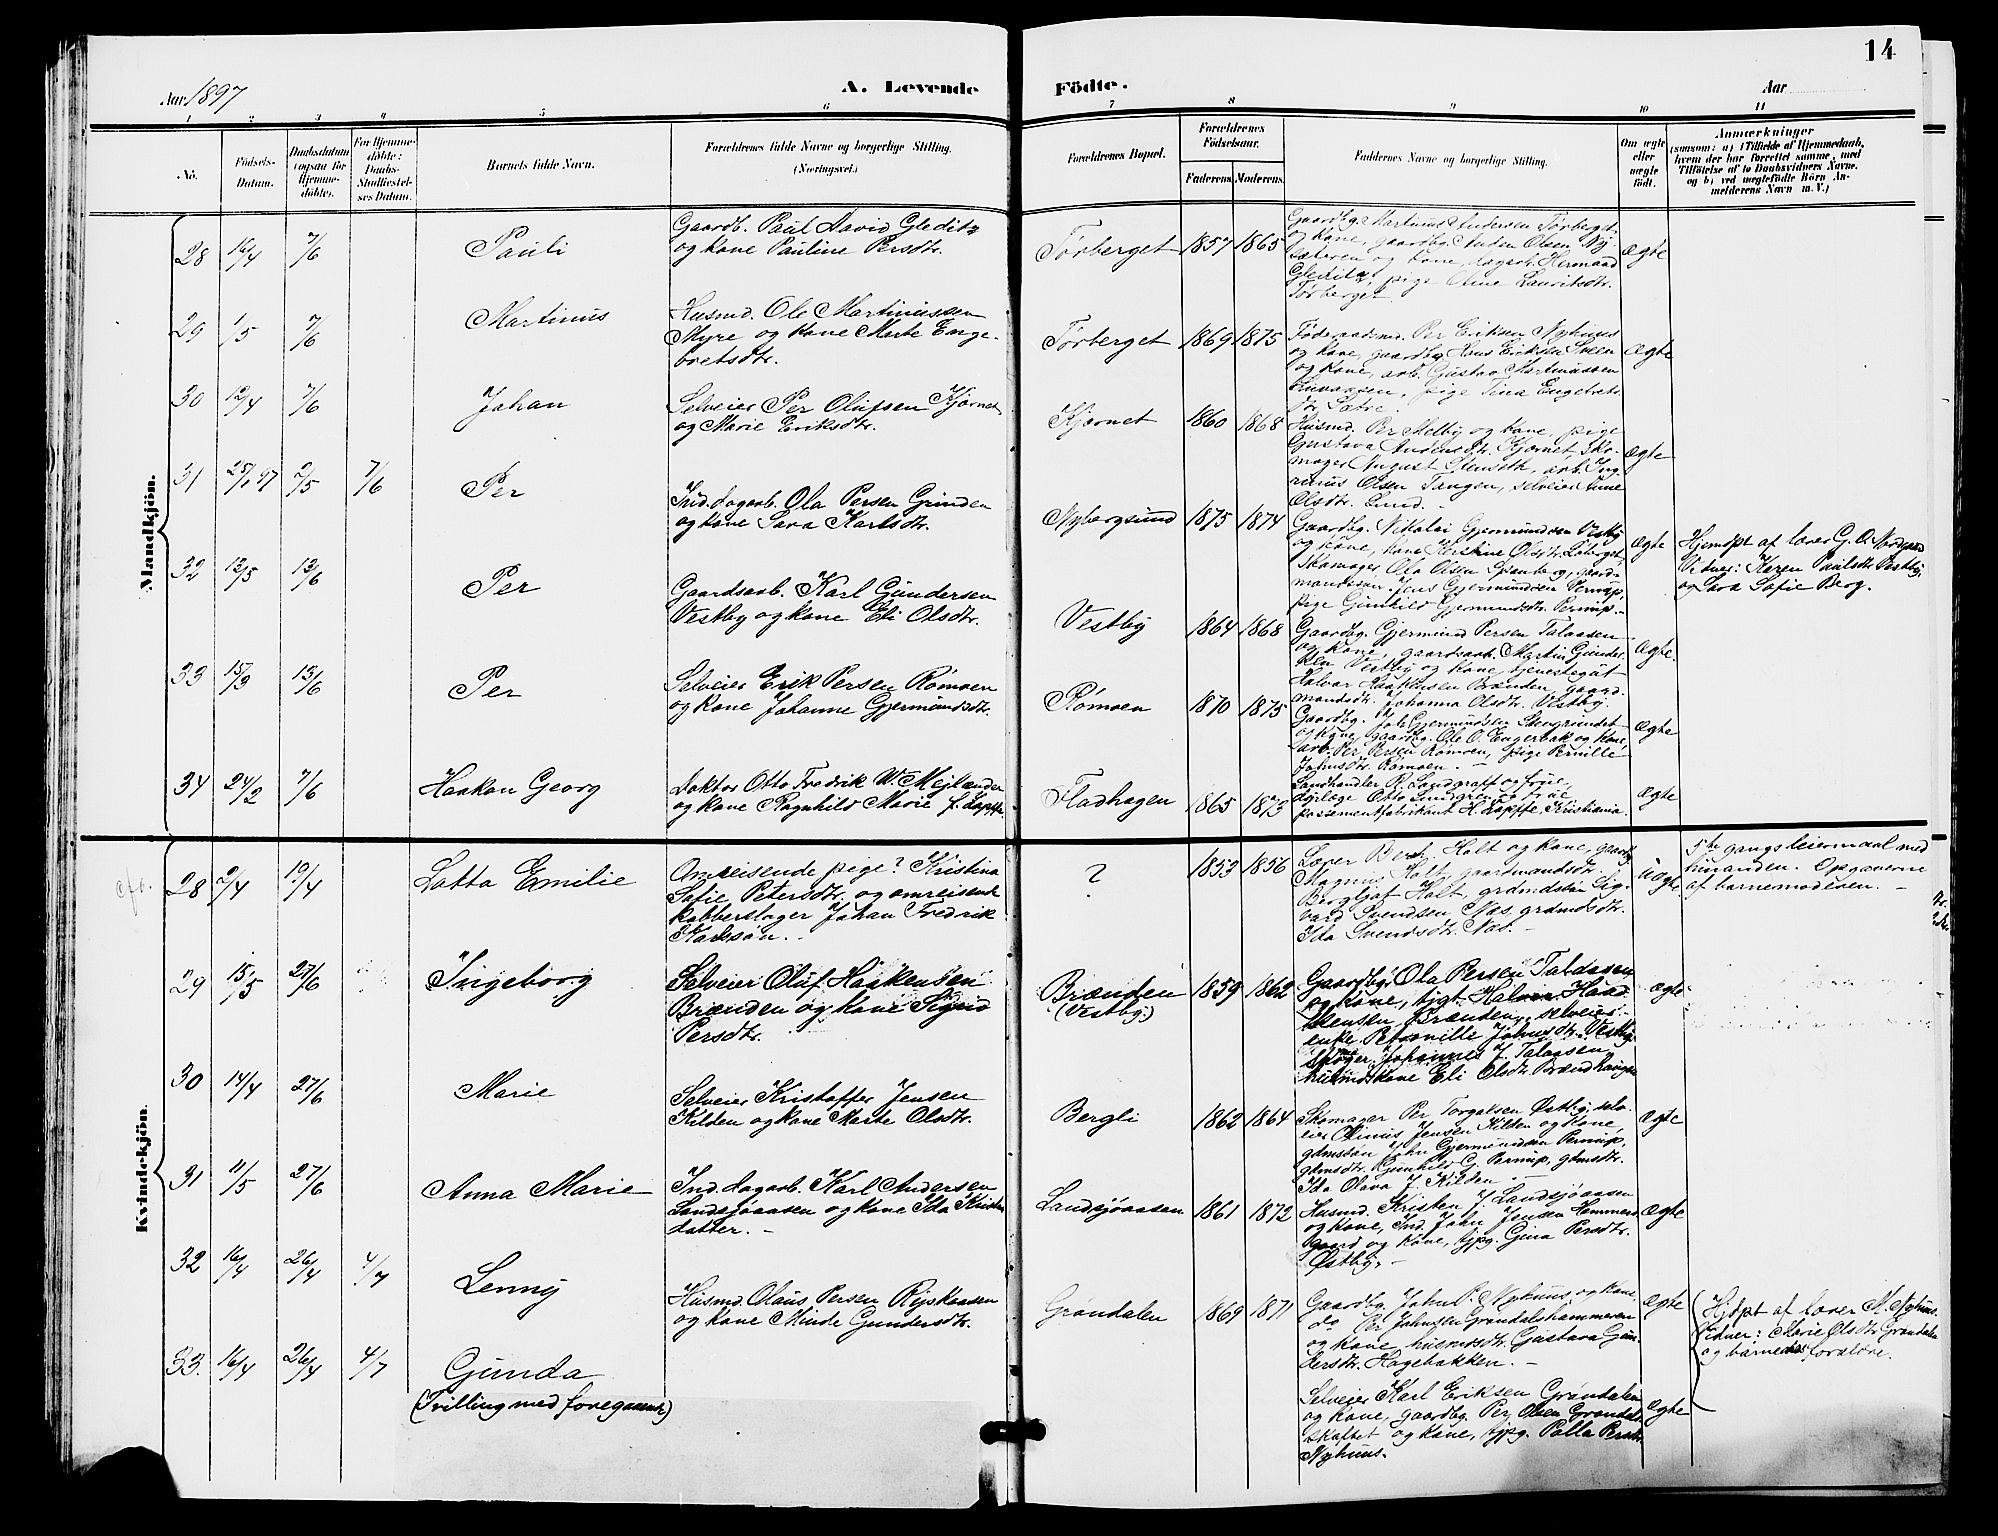 14
Aar 1897
A. Levende
Födte.
Aar
1 2 3 4 5 6 7 8 9 10 11
No.
Födsels-
Datum.
Daabsdatum
(ogsaa for
Hjemme-
döbte).
For Hjemme-
döbte:
Daabs-
Stadfæstel-
ses Datum.
Barnets fulde Navn.
Forældrenes fulde Navne og borgerlige Stilling.
(Næringsvei.)
Forældrenes Bopæl.
Forældrenes
Födselsaar.
Faderens.
Moderens.
Faddernes Navne og borgerlige Stilling.
Om ægte
eller
uægte
födt.
Anmærkninger
(saasom: a) i Tilfælde af Hjemmedaab,
hvem der har forrettet samme, med
Tilföielse af to Daabsvidners Navne.
og b) ved uægtefödte Börn An-
melderens Navn m. V.)
Mandkjön.
28 16/4 7/6 Pauli
Gaardb. Paul David Gleditz
og kone Pauline Persdtr.
Törberget 1857 1865
Gaardbg. Martinus Andersen Törberget
og kone, gaardbg. Olsen Ny
sæteren og kone, dagarb. Herman
Gleditz, pige Oline Lauritsdtr.
Törberget.
Ægte
29 1/5 7/6 Martinus
Husmd. Ole Martinussen
Myre og kone Marte Enge-
bretsdtr.
Törberget 1869 1875
Föderaadsmd. Per Eriksen Nyhuus
og kone, gaardbg. Hans Eriksen Sveen
og kone, arb. Gustav Martinussen
pige Tina Engebrets
dtr. Sætre.
Ægte
30 12/4 7/6 Johan
Selveier Per Olufsen Kjörnet
og Marie Eriksdtr.
Kjörnet 1860 1868
Husmd. Per Melby og kone, pige
Gustava Andersdtr. Kjörnet, Sko-
mager August Stenseth, arb. Ing-
rinus Olsen Tangen, selveier
Olsdtr. Lund.
Ægte
31 25/1 97 2/5 7/6 Per
Ind. dagarb. Ola Persen Grinden
og kone Sara Karlsdtr.
Nybergsund 1875 1874
Gaardbg. Nikolai Gjermundsen Vestby
og kone, kone Kerstine Olsdtr.
Skomager Ola Olsen Spanberg, gaard-
mandssön Jens Gjermundsen Pernup,
pige Gunhild Gjermundsdtr. Pernup.
Ægte
Hjemdpt af lærer G. O. Nordgaard
Vidner: Karen Paulsdtr. Vestby,
og Sara Sofie Berg.
32 12/5 13/6 Per
Gaardsarb. Karl Gundersen
Vestby og kone Eli Olsdtr.
Vestby 1864 1868
Gaardbg. Gjermund Persen Talaasen
og kone, gaardsarb. Martin Gunder-
sen Vestby og kone, tjenestegut
Halvar Haakensen Brænden, gaard-
mandsdtr. Johanna Olsdtr. Vestby.
Ægte.
33 15/3 13/6 Per
Selveier Erik Persen Römoen
og kone Johanne Gjermundsdtr.
Römoen 1870 1875
Gaardbg. Gjermundsen
og kone, gaardbg. Ole O. Engerbak og kone,
arb. Per Persen Römoen, pige Pernille
Johnsdtr. Römoen.
Ægte
34 24/2 7/6 Haakon Georg
Doktor Otto Fredrik W. Mejlænder
og kone Ragnhild Marie f. Loppe.
Flodhagen 1865 1873
Landhandler R. Landgraff og frue,
dyrlæge Otto Lundgren og frue
possementfabrikant H. Loppe, Kristiania.
Ægte
Kvindekjön.
28 2/4 19/4 Lotta Emilie
Omreisende pige? Kristina
Sofie Petersdtr. og omreisende
kobberslager Johan Fredrik
Karlsön.
? 1853 1856
Lærer Bernt Holt og kone, gaardbg.
Magnus Holt, gaardmandsdtr.
Bergljot Holt, grdmdssön Sig-
vard Svendsen, Næs, grdmdsdtr.
Ida Svendsdtr. Næs.
Uægte
5te gangs leiermaal med
hinanden. Opgaverne
af barnemoderen.
29 15/5 27/6 Ingeborg
Selveier Oluf Haakensen
Brænden og kone Signe
Persdtr.
Brænden 1859 1862
(Vestby)
Gaardbg. Ola Persen Talaasen
og kone, tjgt. Halvor Haa-
kensen Brænden, selveier-
enke Pernille Johnsdtr. Vestby,
Johannes J. Talaasen
husmdskone Eli Olsdtr. Brændhaugen
Ægte
30 14/4 27/6 Marie
Selveier Kristoffer Jensen
Kilden og kone Marte Olsdtr.
Bergli 1862 1864
Skomager Per Torgalsen Östby, selv-
eier Olinus Jensen Kilden og kone,
gdmssön John Gjermundsen Pernup,
gdmsdtr. Gunhild G. Pernup, gdmsdtr.
Ida Olava J. Kilden.
Ægte
31 11/5 27/6 Anna Marie
Ind. dagarb. Karl Andersen
Landsjöaasen og kone Ida Kristen
datter.
Landsjöaasen 1861 1872
Husmd. Kristen J. Landsjöaasen
og kone, Ind. John Jensen Hemmers
gaard og kone, tjpg. Gina Persdtr.
Östby.
Ægte
32 16/4 26/4 4/7 Lenny
Husmd. Olaus Persen Ryskaasen
og kone Minde Gundersdtr.
Gröndalen 1869 1871
Gaardbg. John P. Nyhuus og kone,
do Per Johnsen Gröndalshammeren
og kone husmdsdtr. Gustava Gun-
dersdtr. Hagebakken.
Ægte
Hjdpt af lærer M. Nyhuus.
Vidner: Marie Olsdtr. Gröndalen
og barnets forældre.
33. 16/4 26/4 4/7 Gunda
(Tvilling med foregaaende)
Selveier Karl Eriksen Gröndalen
og kone, gaardbg. Per Olsen Gröndals-
skaftet og kone, tjpg. Palla Persdtr.
Nyhuus.
Ægte